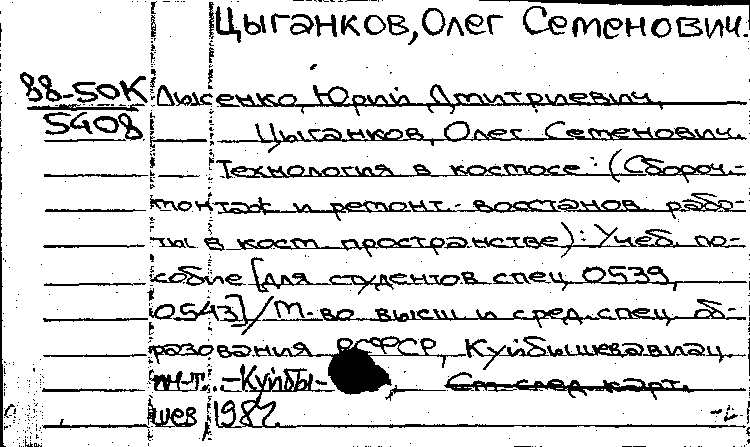 Цыганков, Олег Семенович.
88-50К Лысенко, Юрий Дмитриевич,
5408 Цыганков, Олег Семенович.
Технология в космосе: (Сбороч.-
монтаж и ремонт.-восстанов. рабо-
ты в косм. пространстве): Учеб. по-
собие [для студентов спец. 0539,
0543] / М-во высш. и сред. спец. об-
разования РСФСР, Куйбышев авиац.
ин-т. - Куйбы- См. след. карт.
шев, 198